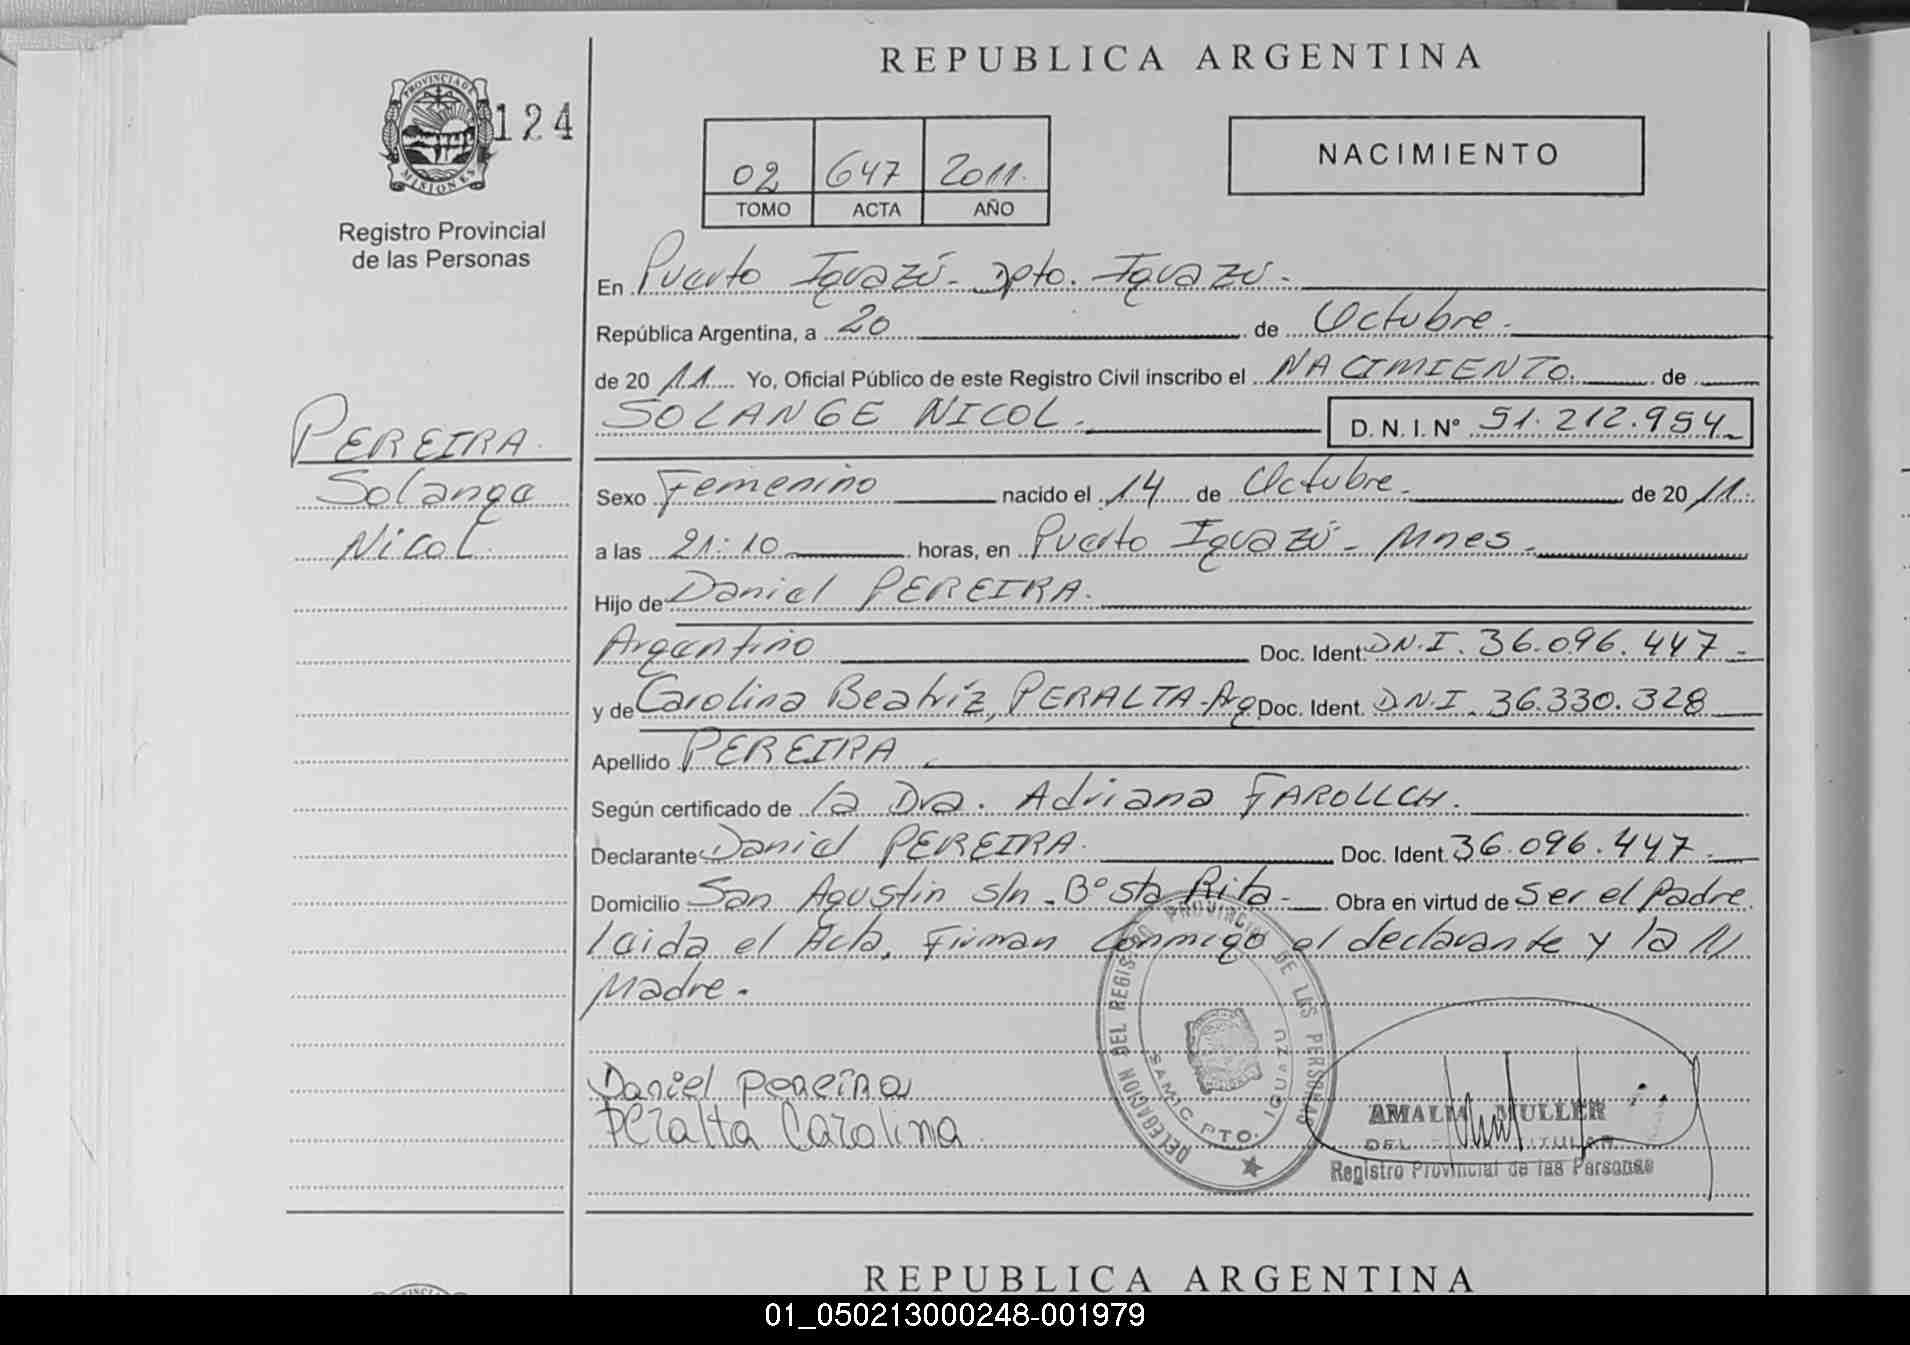 REPUBLICA ARGENTINA
PROVINCIA DE MISIONES
124
Registro Provincial
de las Personas
02 647 2011.
TOMO ACTA AÑO
NACIMIENTO
En Puerto Iguazú - Dpto. Iguazú -
República Argentina, a 20 de Octubre.
de 20 11 Yo, Oficial Público de este Registro Civil inscribo el NACIMIENTO. de
SOLANGE NICOL. D. N. I. Nº 51.212.954
PEREIRA.
Solange
Nicol.
Sexo Femenino nacido el 14 de Octubre. de 20 11.
a las 21:10 horas, en Puerto Iguazú - Mnes.
Hijo de Daniel PEREIRA.
Argentino Doc. Ident. D.N.I. 36.096.447 -
y de Carolina Beatriz, PERALTA - Arg Doc. Ident. D.N.I. 36.330.328
Apellido PEREIRA.
Según certificado de la Dra. Adriana FAROLLCH.
Declarante Daniel PEREIRA. Doc. Ident. 36.096.447.
Domicilio San Agustin s/n - Bº Sta Rita - Obra en virtud de Ser el Padre
Leida el Acta, Firman Conmigo el declarante y la
Madre.
Daniel Pereira
Peralta Carolina
DELEGACION DEL REGISTRO PROVINCIAL DE LAS PERSONAS
SAMIC PTO. IGUAZU
AMALIA MULLER
Registro Provincial de las Personas
REPUBLICA ARGENTINA
01_050213000248-001979